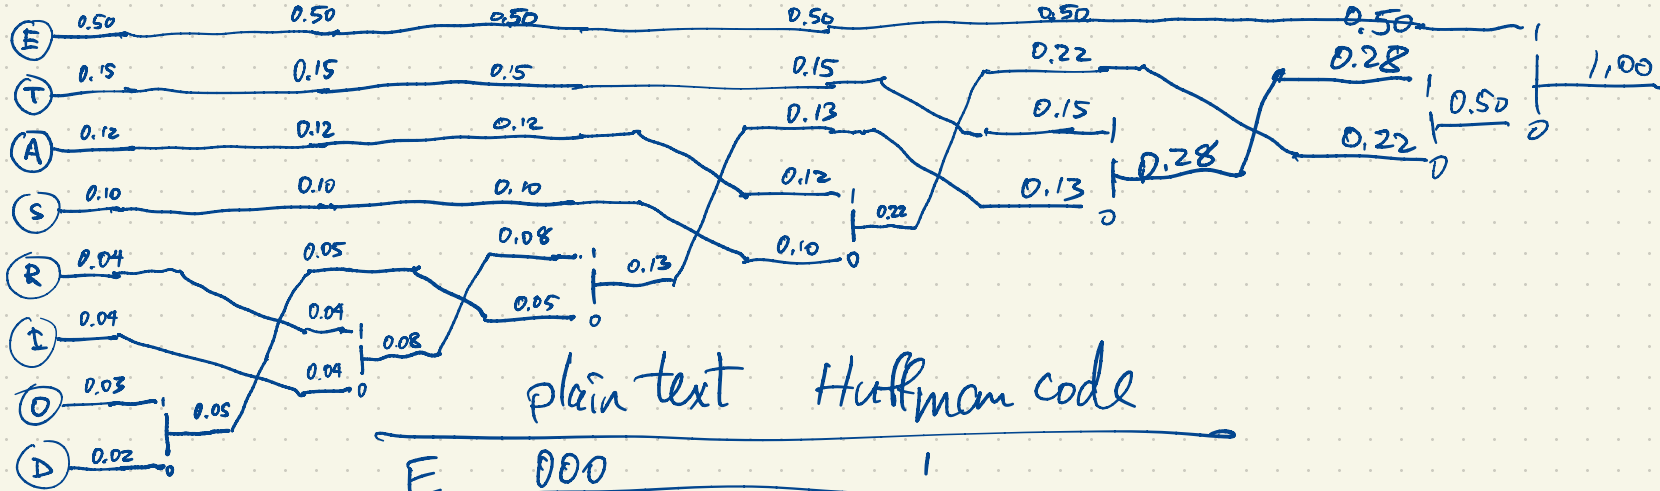 E 0.50 0.50 0.50 0.50 0.50 0.50 1
T 0.15 0.15 0.15 0.15 0.22 0.28 1 0.50 0 1.00
A 0.12 0.12 0.12 0.13 0.15 1 0.28 0.22 0
S 0.10 0.10 0.10 0.12 1 0.22 0.13 0
R 0.04 0.05 0.08 1 0.13 0.10 0
I 0.04 0.04 1 0.08 0.05 0
O 0.03 1 0.05 0.04 0
D 0.02 0
plain text Huffman code
E 000 1